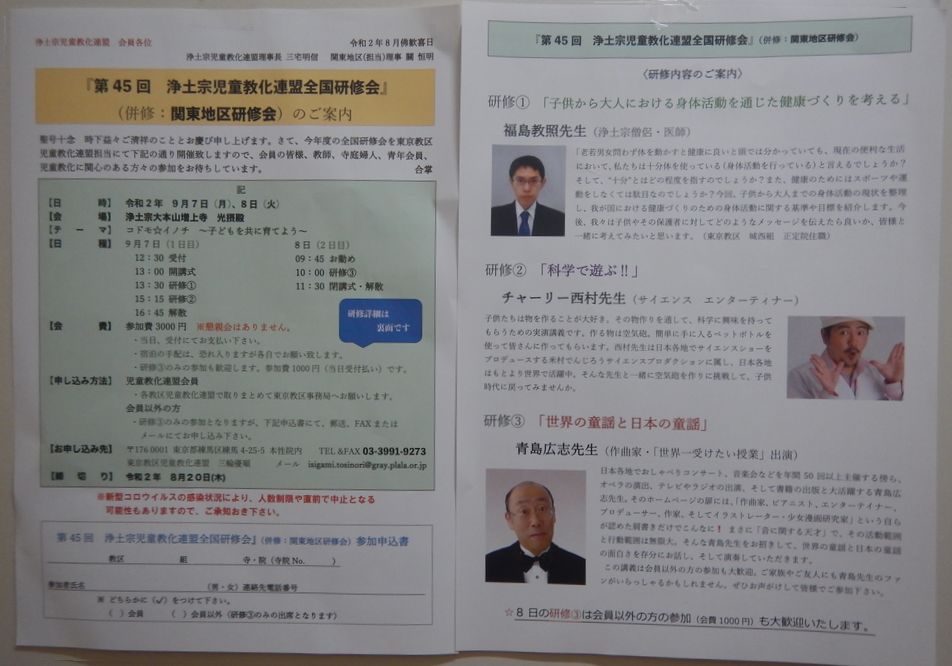 浄土宗児童教化連盟　会員各位
令和２年８月佛歓喜日
浄土宗児童教化連盟理事長 三宅明信　関東地区(担当)理事 關 恒明
『第45回　浄土宗児童教化連盟全国研修会』
（併修：関東地区研修会）のご案内
聖号十念　時下益々ご清祥のこととお慶び申し上げます。さて、今年度の全国研修会を東京教区
児童教化連盟担当にて下記の通り開催致しますので、会員の皆様、教師、寺庭婦人、青年会員、
児童教化に関心のある方々の参加をお待ちしています。　合掌
記
【日　時】令和２年 ９月７日（月）、８日（火）
【会　場】浄土宗大本山増上寺　光摂殿
【テ ー マ】コドモ☆イノチ　～子どもを共に育てよう～
【日　程】９月７日（1日目）　８日（２日目）
12：30 受付　09：45 お勤め
13：00 開講式　10：00 研修③
13：30 研修①　11：30 閉講式・解散
15：15 研修②
16：45 解散
研修詳細は
裏面です
【会　費】参加費3000円　※懇親会はありません。
・当日、受付にてお支払い下さい。
・宿泊の手配は、恐れ入りますが各自でお願い致します。
・研修③のみの参加も歓迎します。参加費1000円（当日受付払い）です。
【申し込み方法】児童教化連盟会員
・各教区児童教化連盟で取りまとめて東京教区事務局へお願いします。
会員以外の方
・研修③のみの参加となりますが、下記申込書にて、郵送、FAXまたは
メールにてお申し込み下さい。
【お申し込み先】〒176 0001 東京都練馬区練馬 4-25-5 本性院内　TEL &FAX 03-3991-9273
東京教区児童教化連盟　三輪優堰　メール　isigami.tosinori@gray.plala.or.jp
【締 切 り】令和２年　８月20日(木)
※新型コロナウイルスの感染状況により、人数制限や直前で中止となる
可能性もありますので、ご承知おき下さい。
『第45回　浄土宗児童教化連盟全国研修会』（併修：関東地区研修会）参加申込書
教区　組　寺・院（寺院No.　）
参加者氏名　（男・女）連絡先電話番号
※ どちらかに（✓）をつけて下さい。
（　）会員　（　）会員以外（研修③のみの出席となります）
『第45回　浄土宗児童教化連盟全国研修会』（併修：関東地区研修会）
〈研修内容のご案内〉
研修①　「子供から大人における身体活動を通じた健康づくりを考える」
福島教照先生（浄土宗僧侶・医師）
「老若男女問わず体を動かすと健康に良いと頭では分かっていても、現在の便利な生活
において、私たちは十分体を使っている（身体活動を行っている）と言えるでしょうか？
そして、“十分”とはどの程度を指すのでしょうか？また、健康のためにはスポーツや運
動をしなくては駄目なのでしょうか？今回、子供から大人までの身体活動の現状を整理
し、我が国における健康づくりのための身体活動に関する基準や目標を紹介します。今
後、我々は子供やその保護者に対してどのようなメッセージを伝えたら良いか、皆様と
一緒に考えてみたいと思います。（東京教区　城西組　正定院住職）
研修②　「科学で遊ぶ!!」
チャーリー西村先生（サイエンス　エンターティナー）
子供たちは物を作ることが大好き。その物作りを通して、科学に興味を持って
もらうための実演講義です。作る物は空気砲。簡単に手に入るペットボトルを
使って皆さんに作ってもらいます。西村先生は日本各地でサイエンスショーを
プロデュースする米村でんじろうサイエンスプロダクションに属し、日本各地
はもとより世界で活躍中。そんな先生と一緒に空気砲を作りに挑戦して、子供
時代に戻ってみませんか。
研修③　「世界の童謡と日本の童謡」
青島広志先生（作曲家・「世界一受けたい授業」出演）
日本各地でおしゃべりコンサート、音楽会などを年間50回以上主催する傍ら、
オペラの演出、テレビやラジオの出演、そして書籍の出版と大活躍する青島広
志先生。そのホームページの扉には、「作曲家、ピアニスト、エンターテイナー、
プロデューサー、作家、そしてイラストレーター・少女漫画研究家」という自ら
が認めた肩書きだけでこんなに！まさに「音に関する天才」で、その活動範囲
と行動範囲は無限大。そんな青島先生をお招きして、世界の童謡と日本の童謡
の面白さを存分にお話し、そして演奏していただきます。
この講義は会員以外の方の参加も大歓迎。ご家族やご友人にも青島先生のファ
ンがいらっしゃるかもしれません。ぜひお声がけして皆様でご参加下さい。
☆８日の研修③は会員以外の方の参加（会費1000円）も大歓迎いたします。